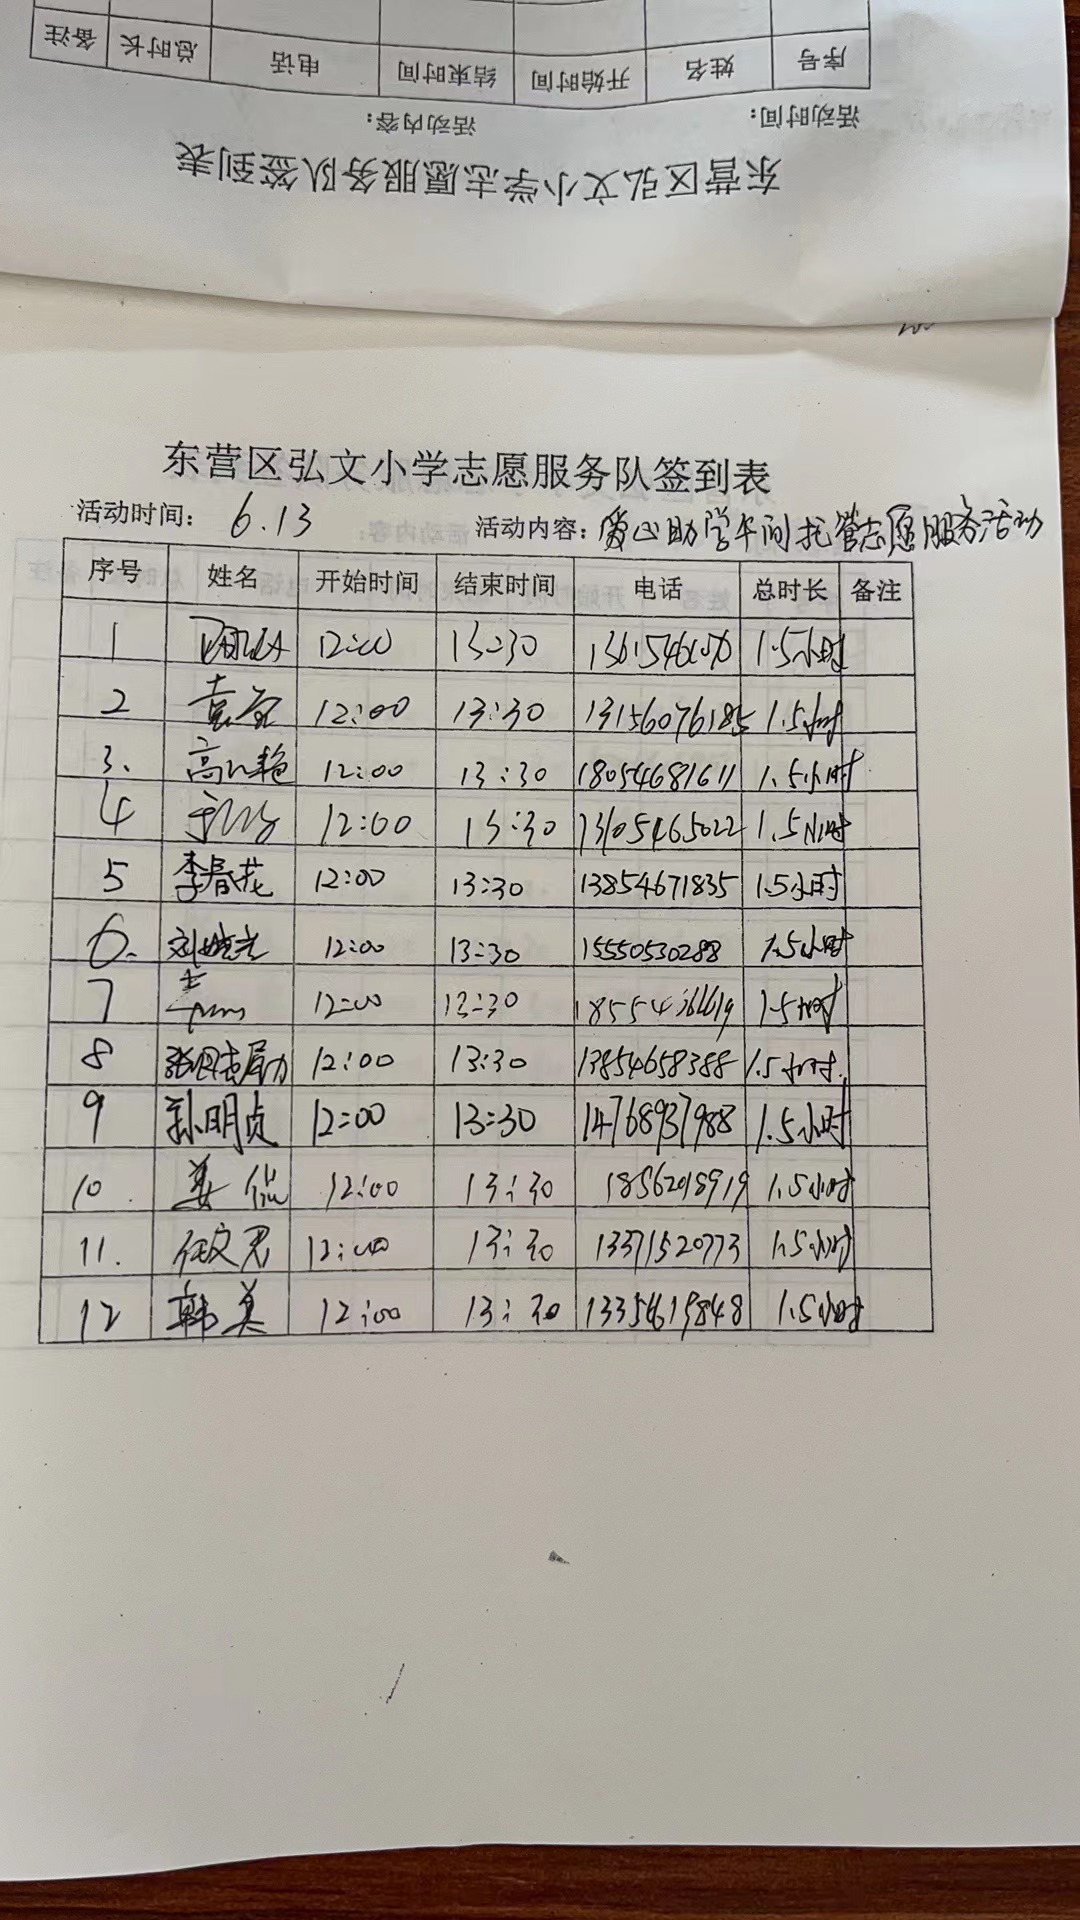 备注 总时长 电话 结束时间 开始时间 姓名 序号
活动内容： 活动时间：
东营区弘文小学志愿服务队签到表
东营区弘文小学志愿服务队签到表
活动时间： 6.13 活动内容：爱心助学午间托管志愿服务活动
序号 姓名 开始时间 结束时间 电话 总时长 备注
1 12:00 13:30 1.5小时
2 12:00 13:30 13156076185 1.5小时
3. 高 艳 12:00 13:30 18054681611 1.5小时
4 12:00 13:30 13105465022 1.5小时
5 李春花 12:00 13:30 13854671835 1.5小时
6. 刘晓光 12:00 13:30 15550530288 1.5小时
7 12:00 13:30 1.5小时
8 张 12:00 13:30 13854658388 1.5小时.
9 孙明贞 12:00 13:30 14768937988 1.5小时
10. 姜 侃 12:00 13:30 18562018919 1.5小时
11. 任文君 12:00 13:30 13371520773 1.5小时
12 韩美 12:00 13:30 1.5小时